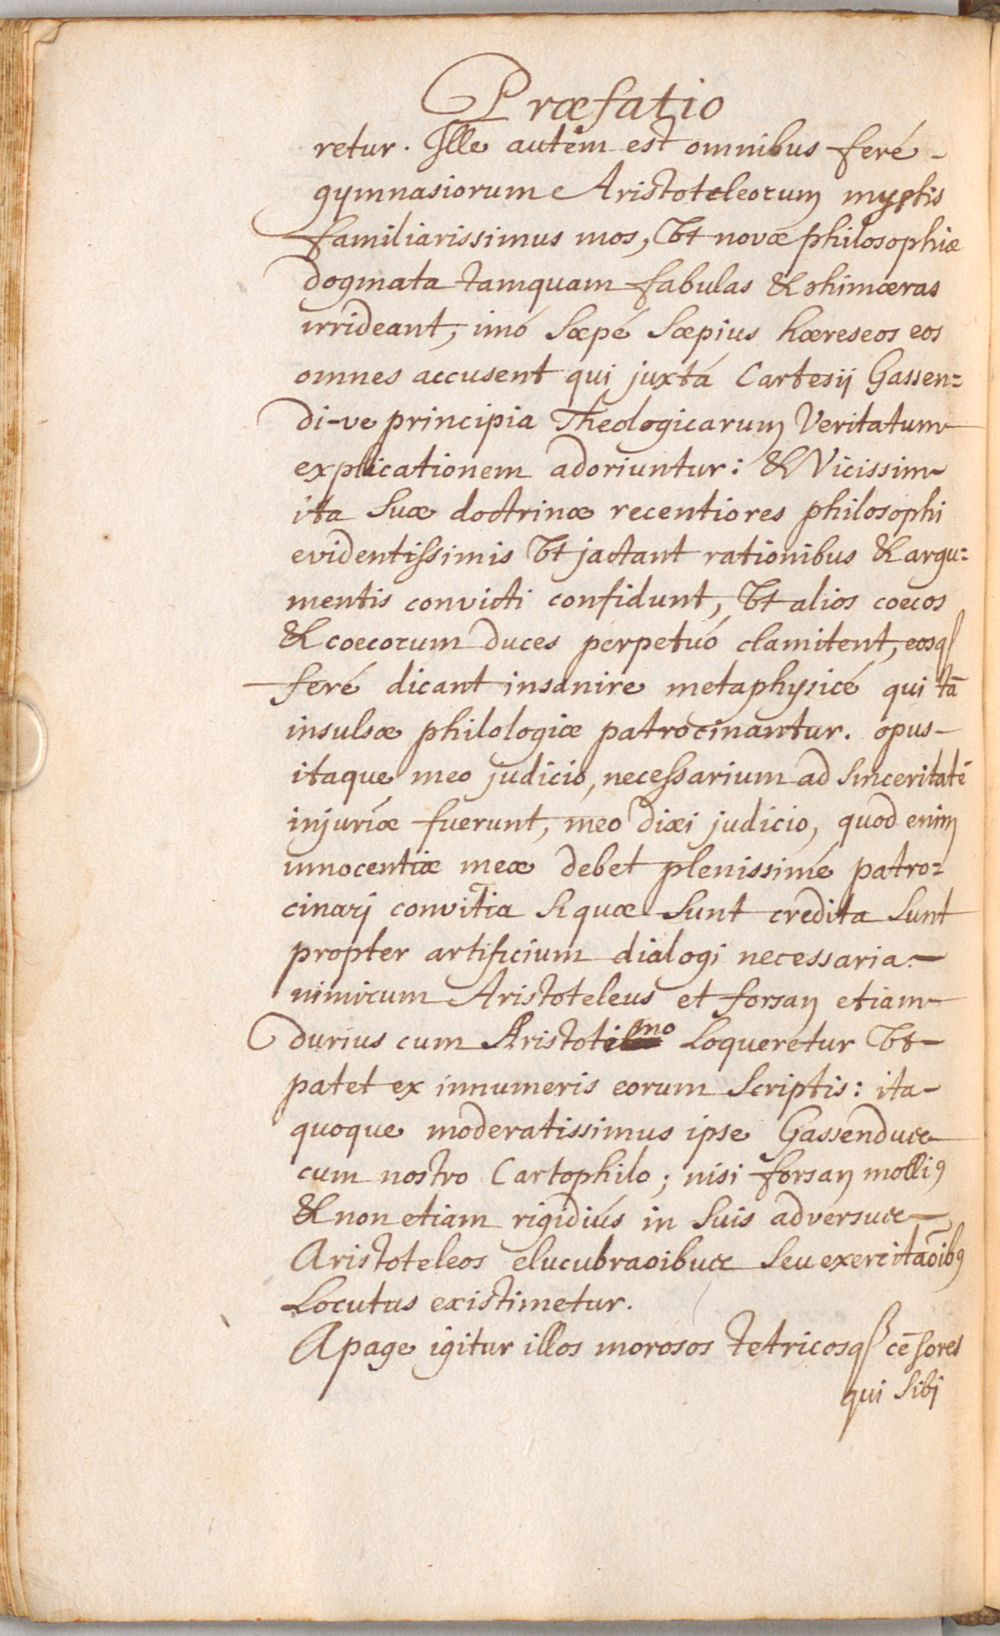 Præfatio
retur. Ille autém est omnibus feré
gymnasiorum Aristoteleorum mystis
familiarissimus mos, Ut novæ philosophiæ
dogmata tamquam fabulas & chimæras
irrideant, imó sæpé sæpius hæreseos eos
omnes accusent qui juxtá Cartesij Gassen=
di-ve principia Theologicarum Veritatum
explicationem adoriuntur: & Vicissim
ita suæ doctrinæ recentiores philosophi
evidentissimis Ut jactant rationibus & argu=
mentis convicti confidunt, Ut alios coecos
& coecorum duces perpetuó clamitent, eosq
feré dicant insanire metaphysicé qui tā
insulsæ philologiæ patrocinantur. opus
itaque meo judicio, necessarium ad sinceritatē
injuriæ fuerunt, meo dixi judicio, quod enim
innocentiæ meæ debet plenissimé patro=
cinarj convitia siquæ sunt credita sunt
propter artificium dialogi necessaria.
nimirum Aristoteleus et forsan etiam
durius cum Aristotelmo loqueretur Ut
patet ex innumeris eorum scriptis: ita
quoque moderatissimus ipse Gassendus
cum nostro Cartophilo; nisi forsan molliꝰ
& non etiam rigidiús in suis adversus
Aristoteleos elucubraoibus seu exercitaōibꝰ
Locutus existimetur.
Apage igitur illos morosos tetricosq cēsores
qui sibj